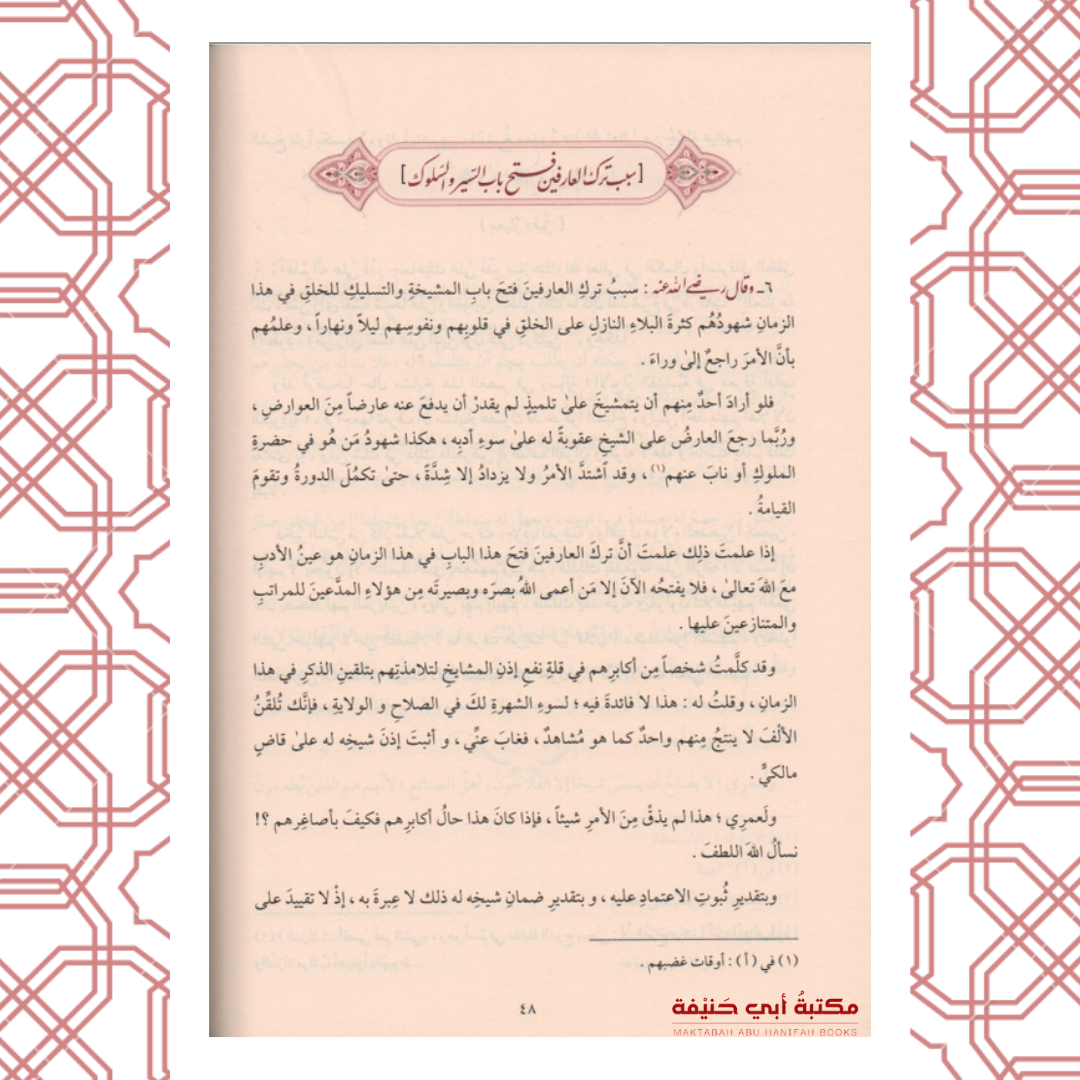 [سبب ترك العارفين فتح باب السير والسلوك]
٦ـ وقال رضي الله عنه : سببُ تركِ العارفينَ فتحَ بابِ المشيخةِ والتسليكِ للخلقِ في هذا
الزمانِ شهودُهُم كثرةَ البلاءِ النازلِ على الخلقِ في قلوبِهم ونفوسِهم ليلاً ونهاراً ، وعلمُهم
بأنَّ الأمرَ راجعٌ إلىٰ وراءَ .
فلو أرادَ أحدٌ مِنهم أن يتمشيخَ علىٰ تلميذٍ لم يقدرْ أن يدفعَ عنه عارضاً مِنَ العوارضِ ،
ورُبَّما رجعَ العارضُ على الشيخِ عقوبةً له علىٰ سوءِ أدبِه ، هكذا شهودُ مَن هُو في حضرةِ
الملوكِ أو نابَ عنهم(١) ، وقد ٱشتدَّ الأمرُ ولا يزدادُ إلا شِدَّةً ، حتىٰ تكمُلَ الدورةُ وتقومَ
القيامةُ .
إذا علمتَ ذلك علمتَ أنَّ تركَ العارفينَ فتحَ هذا البابِ في هذا الزمانِ هو عينُ الأدبِ
معَ اللهَ تعالىٰ ، فلا يفتحُه الآنَ إلا مَن أعمى اللهُ بصرَه وبصيرتَه مِن هؤلاءِ المدَّعينَ للمراتبِ
والمتنازعينَ عليها .
وقد كلَّمتُ شخصاً مِن أكابرِهم في قلةِ نفعِ إذنِ المشايخِ لتلامذتِهم بتلقينِ الذكرِ في هذا
الزمانِ ، وقلتُ له : هذا لا فائدةَ فيه ؛ لسوءِ الشهرةِ لكَ في الصلاحِ و الولايةِ ، فإنَّك تُلقِّنُ
الألْفَ لا ينتجُ مِنهم واحدٌ كما هو مُشاهدٌ ، فغابَ عنِّي ، و أثبتَ إذنَ شيخِه له علىٰ قاضٍ
مالكيٍّ .
ولَعمرِي ؛ هذا لم يذقْ مِنَ الأمرِ شيئاً ، فإذا كانَ هذا حالُ أكابرِهم فكيفَ بأصاغِرِهم ؟!
نسألُ اللهَ اللطفَ .
وبتقديرِ ثُبوتِ الاعتمادِ عليه ، و بتقديرِ ضمانِ شيخِه له ذلك لا عِبرةَ به ، إذْ لا تقييدَ على
(١) في (أ) : أوقات غضبهم .
٤٨
مكتبةُ أبي حَنيْفة
MAKTABAH ABU HANIFAH BOOKS